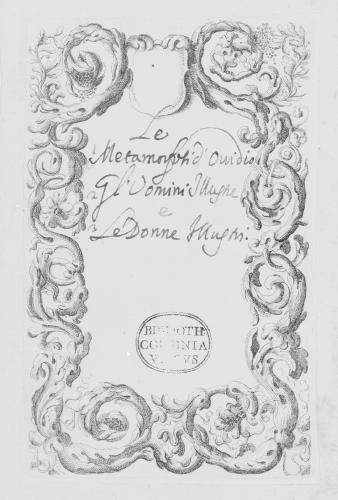 Le
1 Metamorfosi d'Ovidio
2 Gl'Uomini Illustri
e
3 Le Donne Illustri.
BIBLIOTH
VS